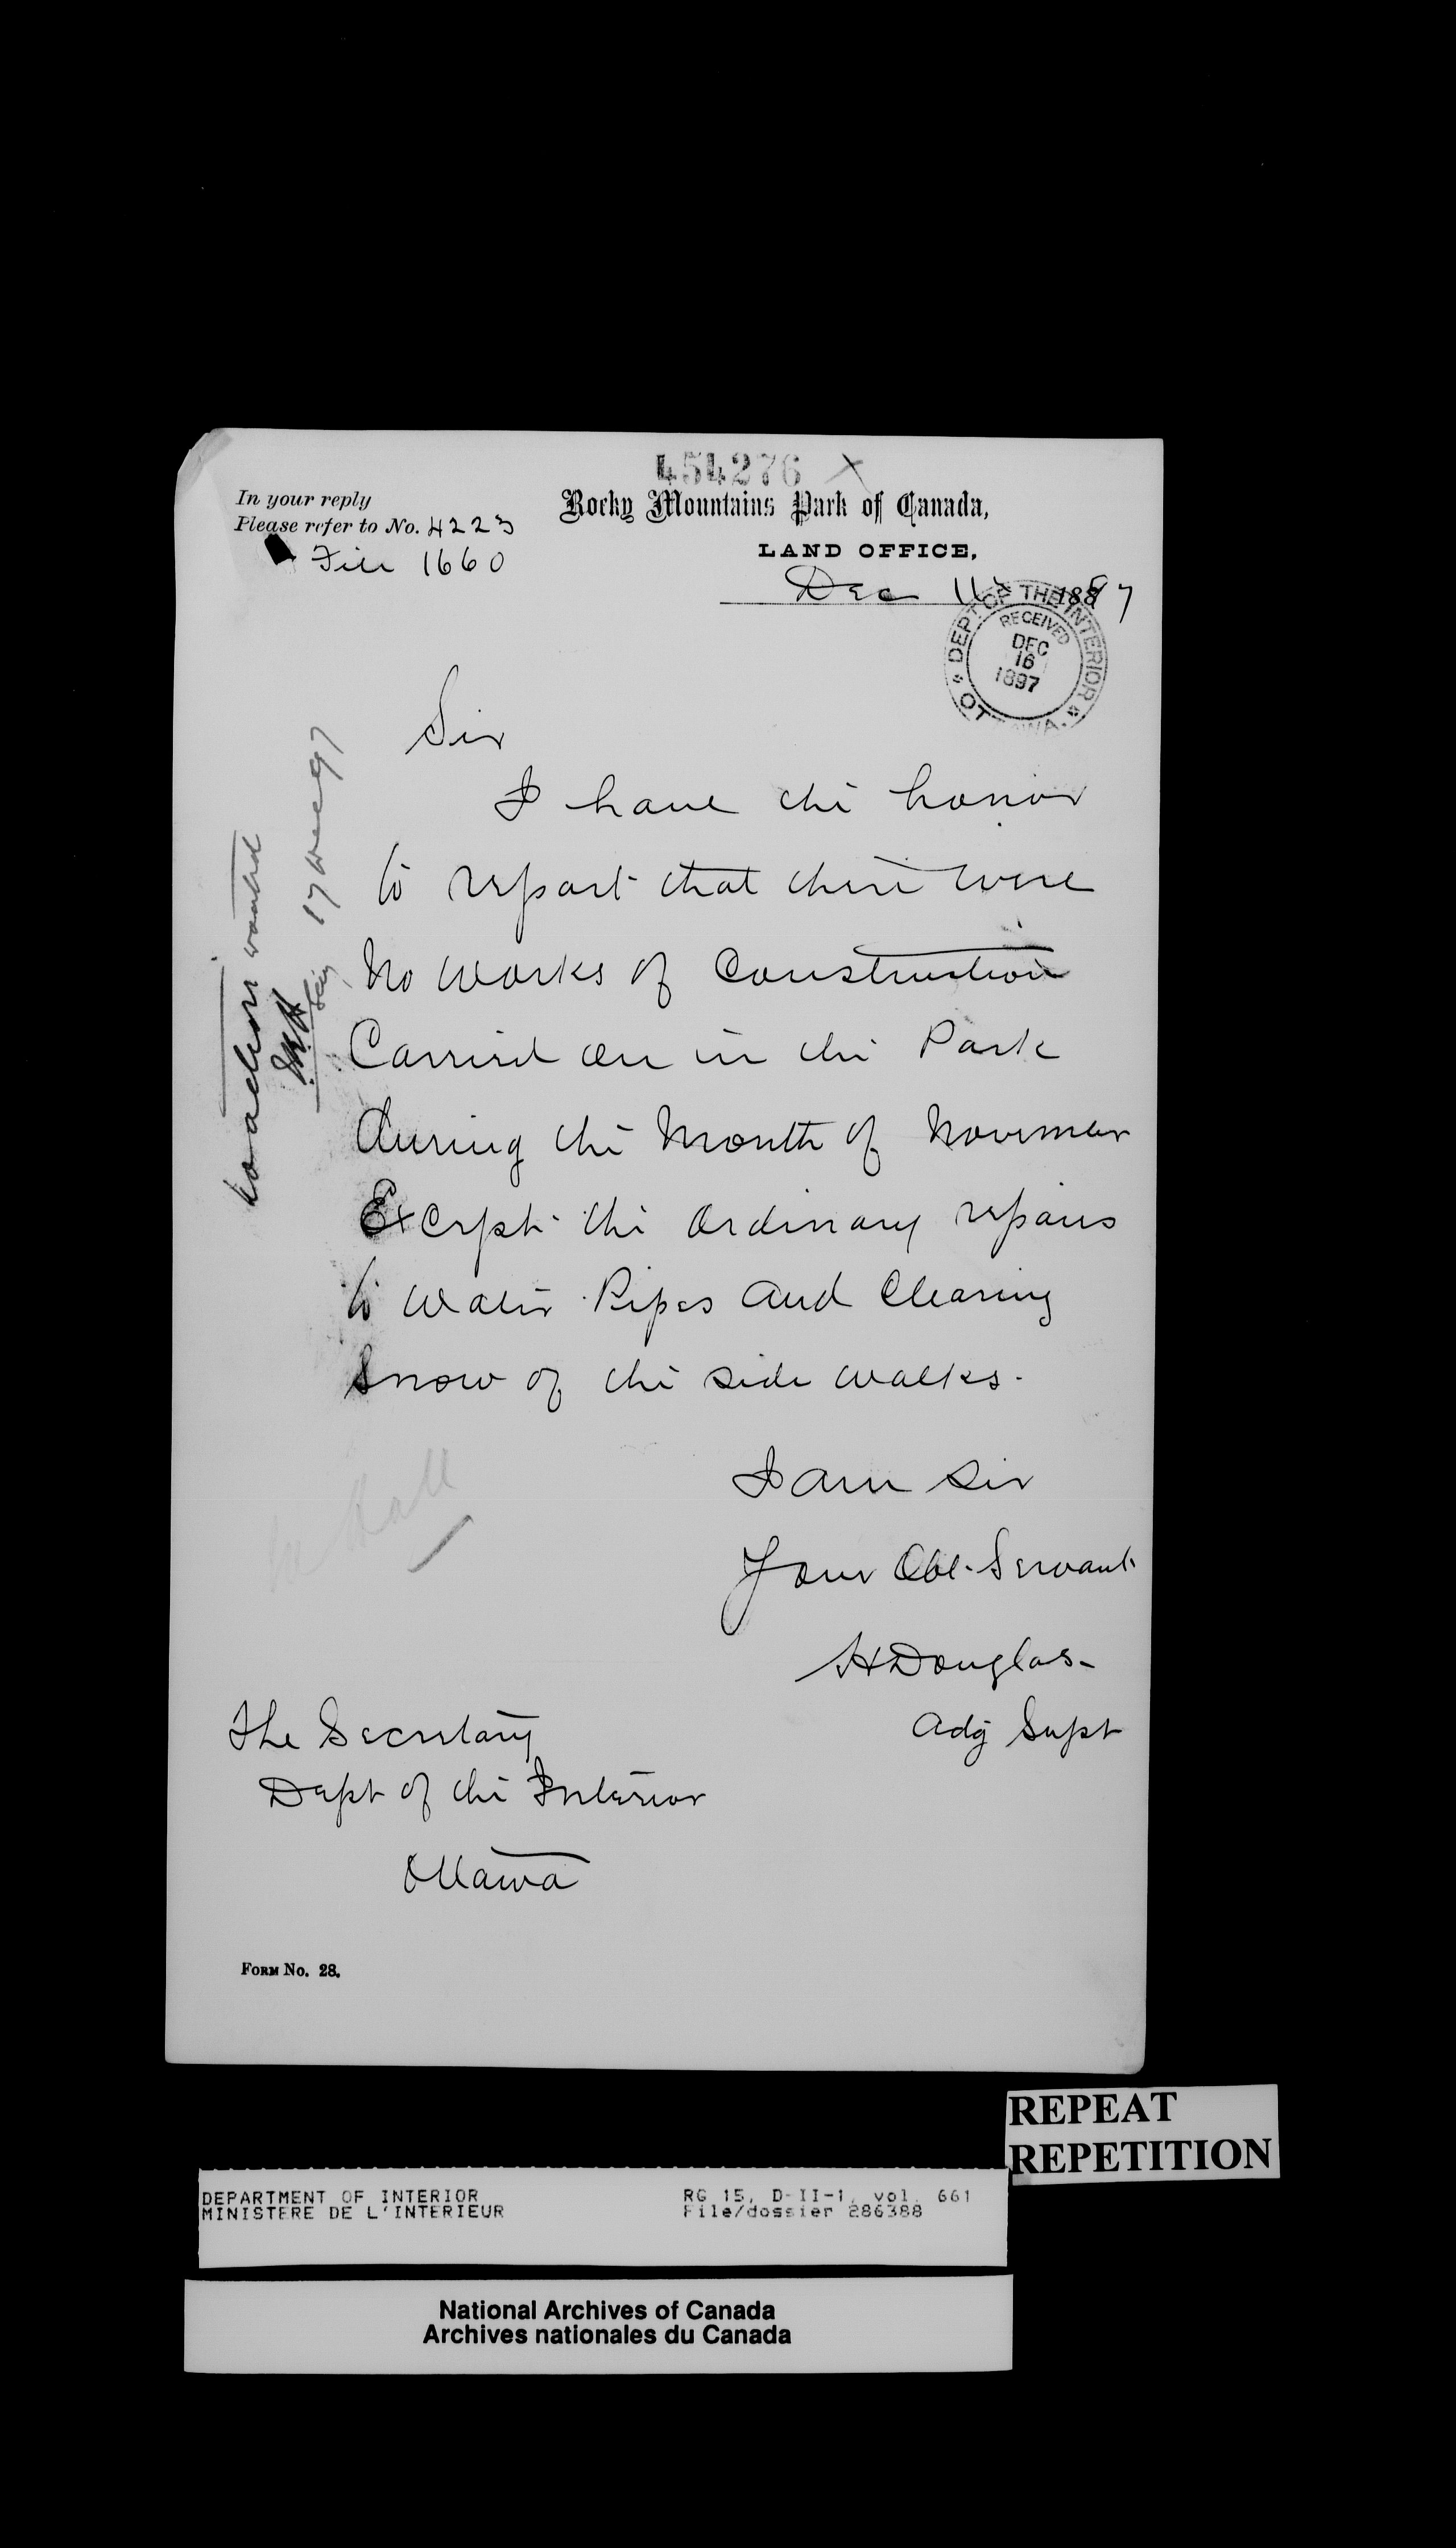 454276 X
In your reply
Please refer to No. 4223
File 1660
Rocky Mountains Park of Canada,
LAND OFFICE,
Dec 11 1897
DEPT OF THE INTERIOR
RECEIVED
DEC
16
1897
OTTAWA.
Sir
I have the honor
to report that there were
No works of Construction
Carried on in the Park
during the Month of Novemer
Except the ordinary repairs
to Water Pipes and Clearing
Snow of the side walks.
I am Sir
Your Obt. Servant
H Douglas
Adg Supt
The Secretary
Dept of the Interior
Ottawa
No action wanted
17 Dec 97
Mr Hall
FORM No. 28.
REPEAT
REPETITION
DEPARTMENT OF INTERIOR
MINISTERE DE L'INTERIEUR
RG 15, D-II-1, vol. 661
File/dossier 286388
National Archives of Canada
Archives nationales du Canada